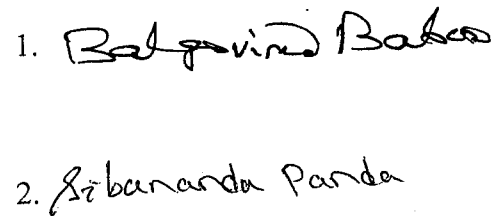 1. Balgovind Baboo
2. Sibananda Panda